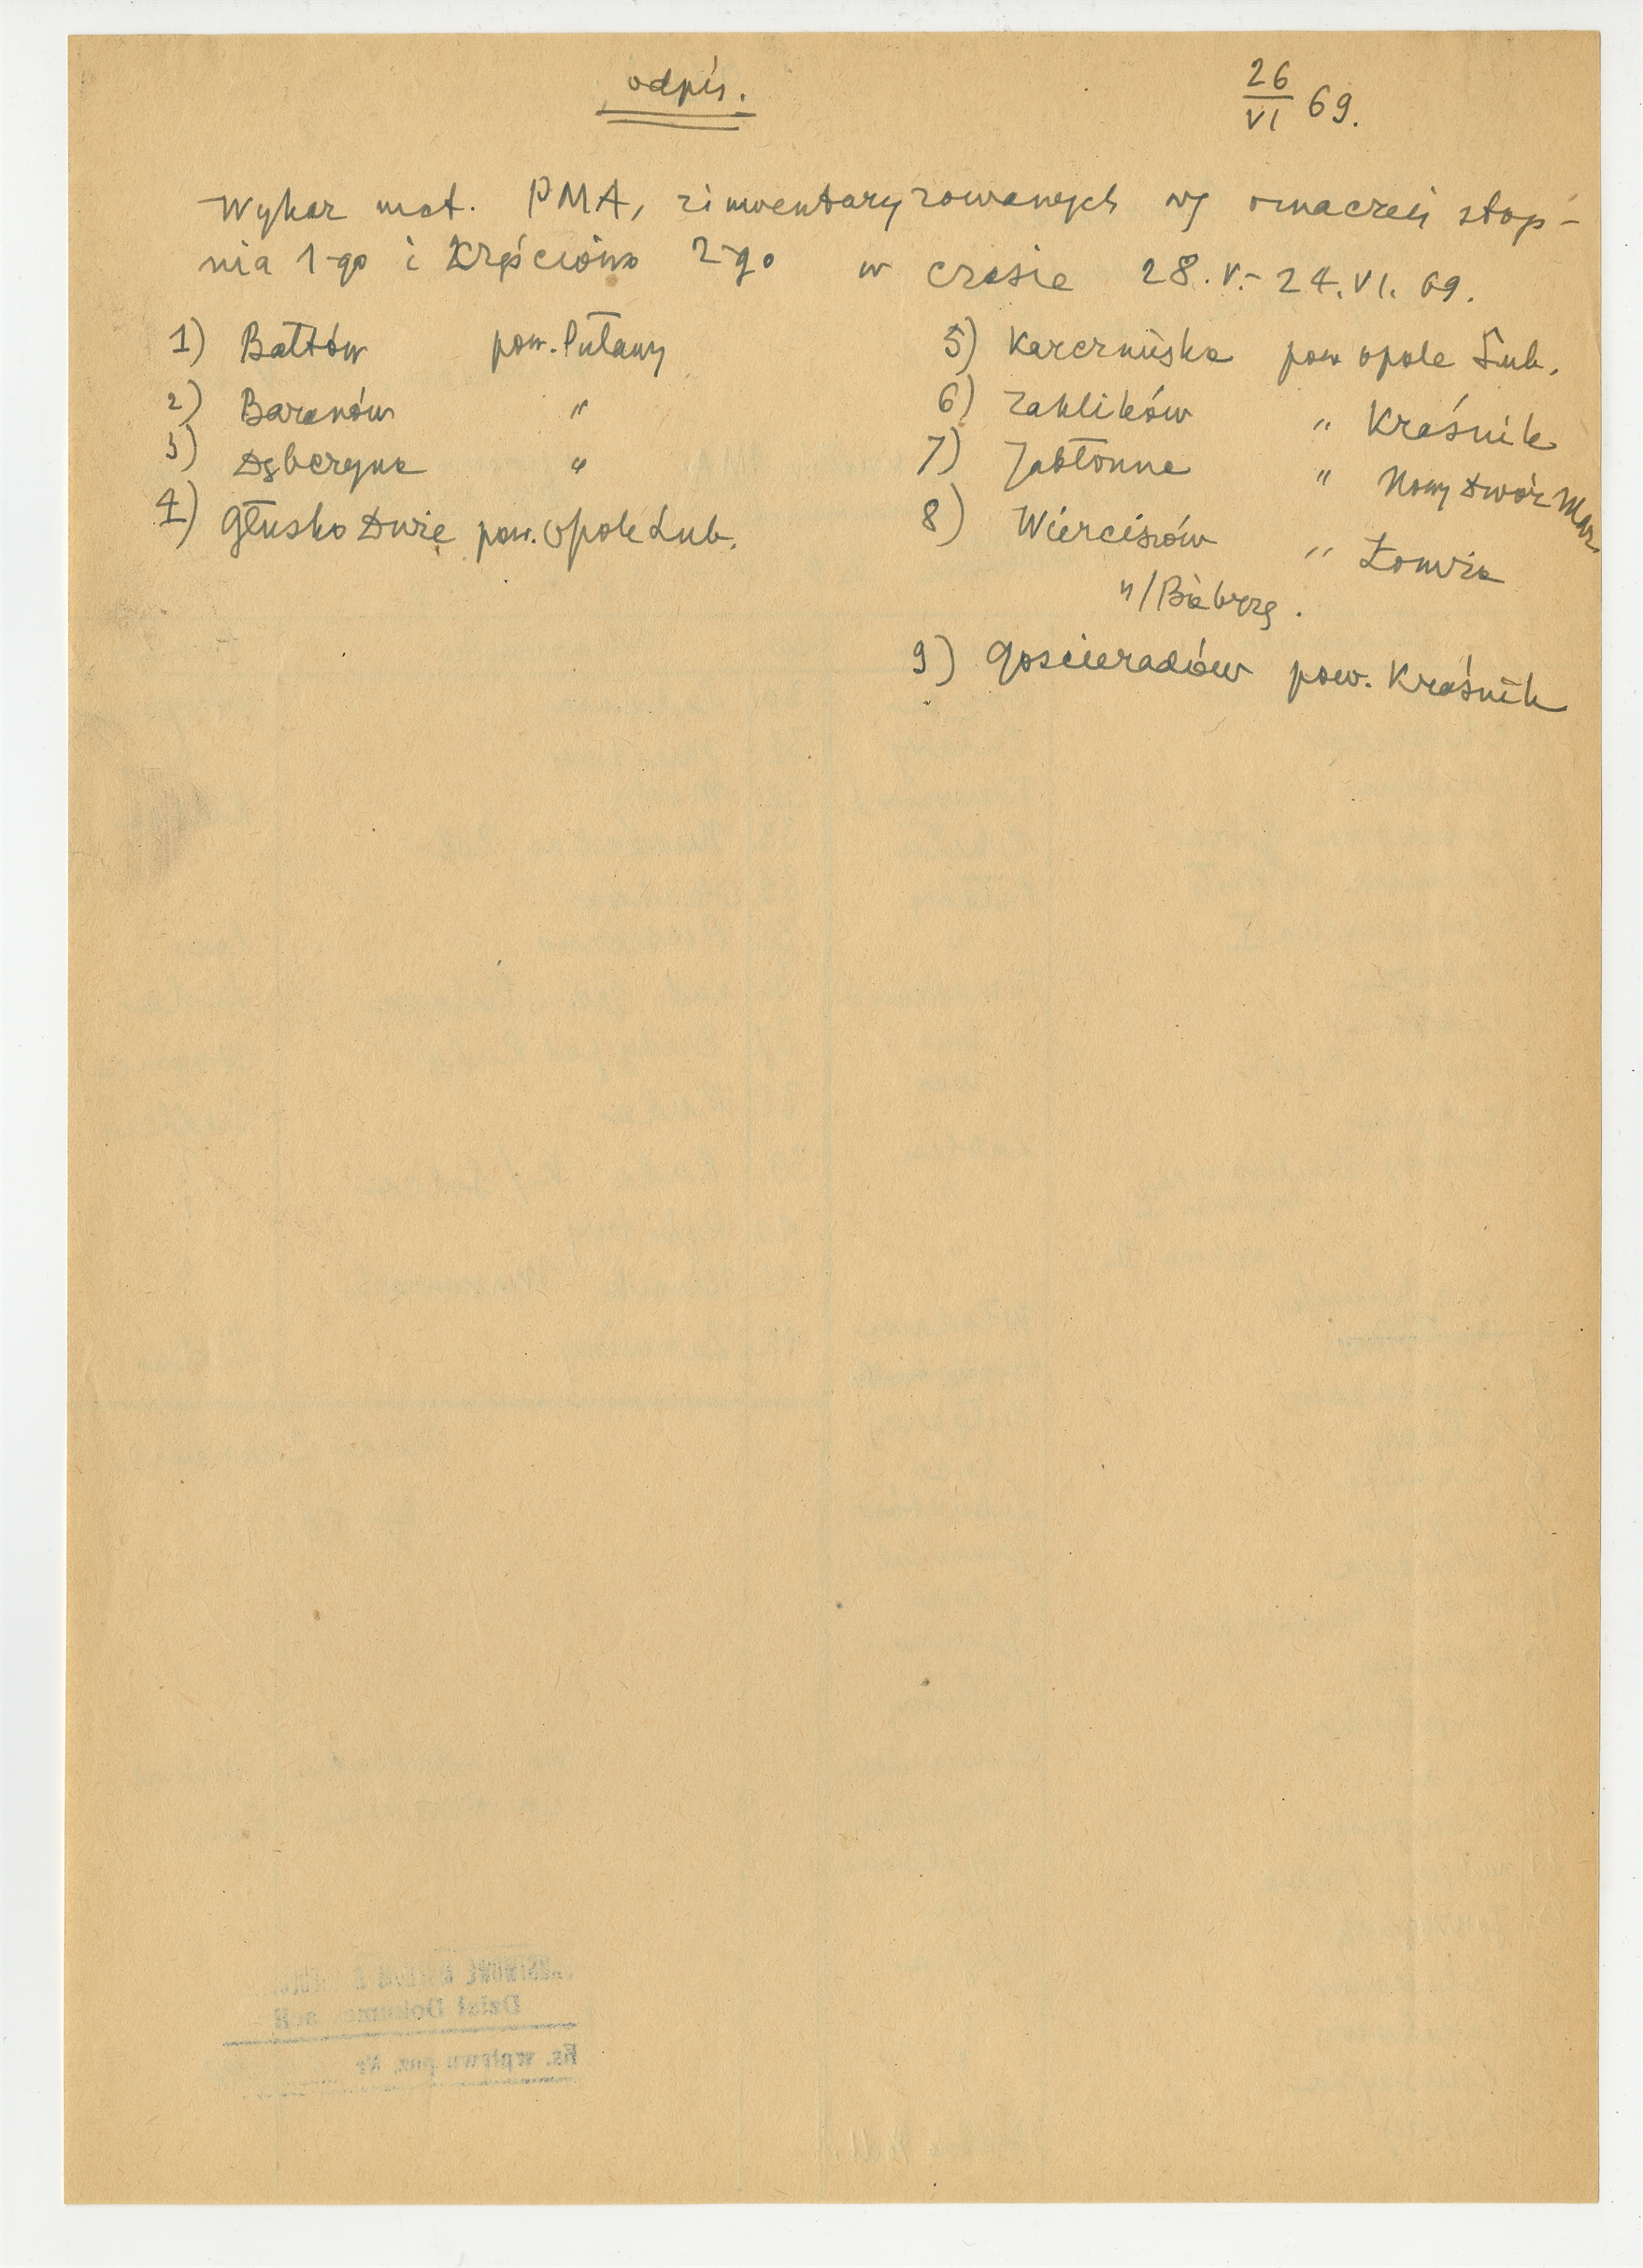 odpis.
26/VI 69.
Wykaz mat. PMA, zinwentaryzowanych wg oznaczeń stop-
nia 1-go i częściowo 2-go w czasie 28.V.-24.VI.69.
1) Bałtów pow. Puławy
2) Baranów "
3) "
4) Głusko Duże pow. Opole Lub.
5) Karczmiska pow opole Lub.
6) Zaklików " Kraśnik
7) Jabłonna " Nowy Dwór Maz.
8) Wierciszów " Łomża
n/Biebrzą.
9) Gościeradów pow. Kraśnik
Dział Dokumentacji
Ks. wpływu poz. Nr